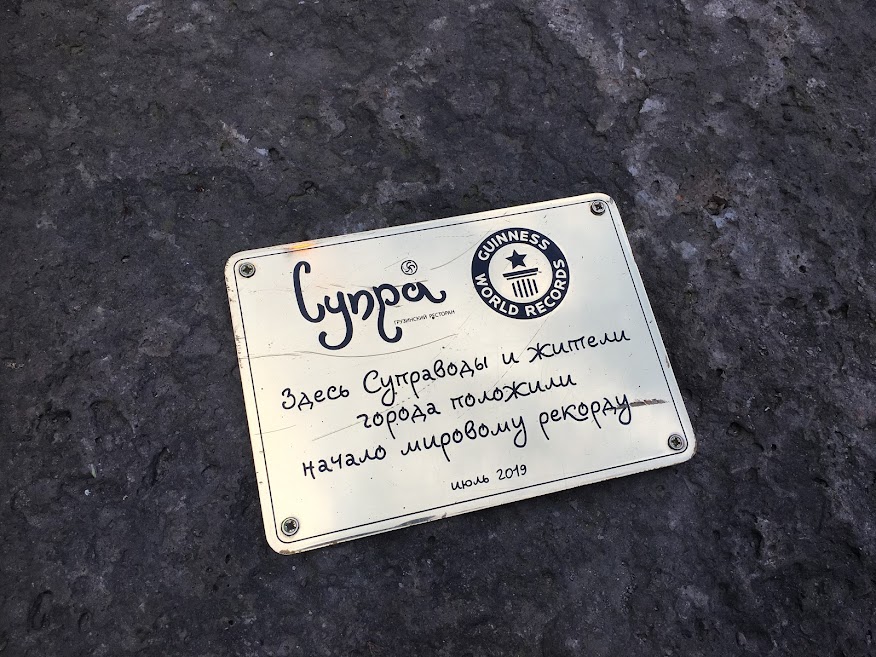 Супра
ГРУЗИНСКИЙ РЕСТОРАН
GUINNESS
WORLD RECORDS
Здесь Суправоды и жители
города положили
начало мировому рекорду
июль 2019